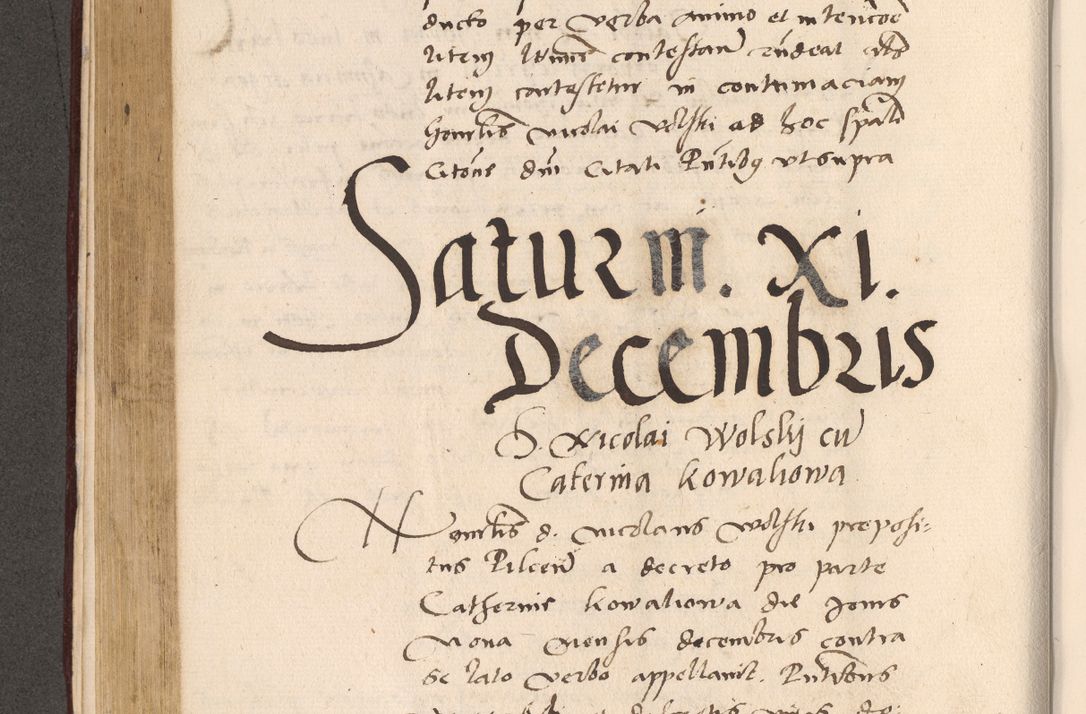 ducto per verba animo et intencoe
litem ltime contestand rndeat als
litem contestetur in contumaciam
honrlis nicolai wolski ad hoc spald
Citone dni Citati Pntibq ut supra
Saturni. Xi.
Decembris
D. Nicolai Wolskij cu
Caterina Kowaliowa
Honrlis d. Nicolaus wolski preposi-
tus Pilcen a decreto pro parte
Catherine Kowaliowa die Jouis
Nona mensis decembris contra
se lato verbo appellauit. Pntibus